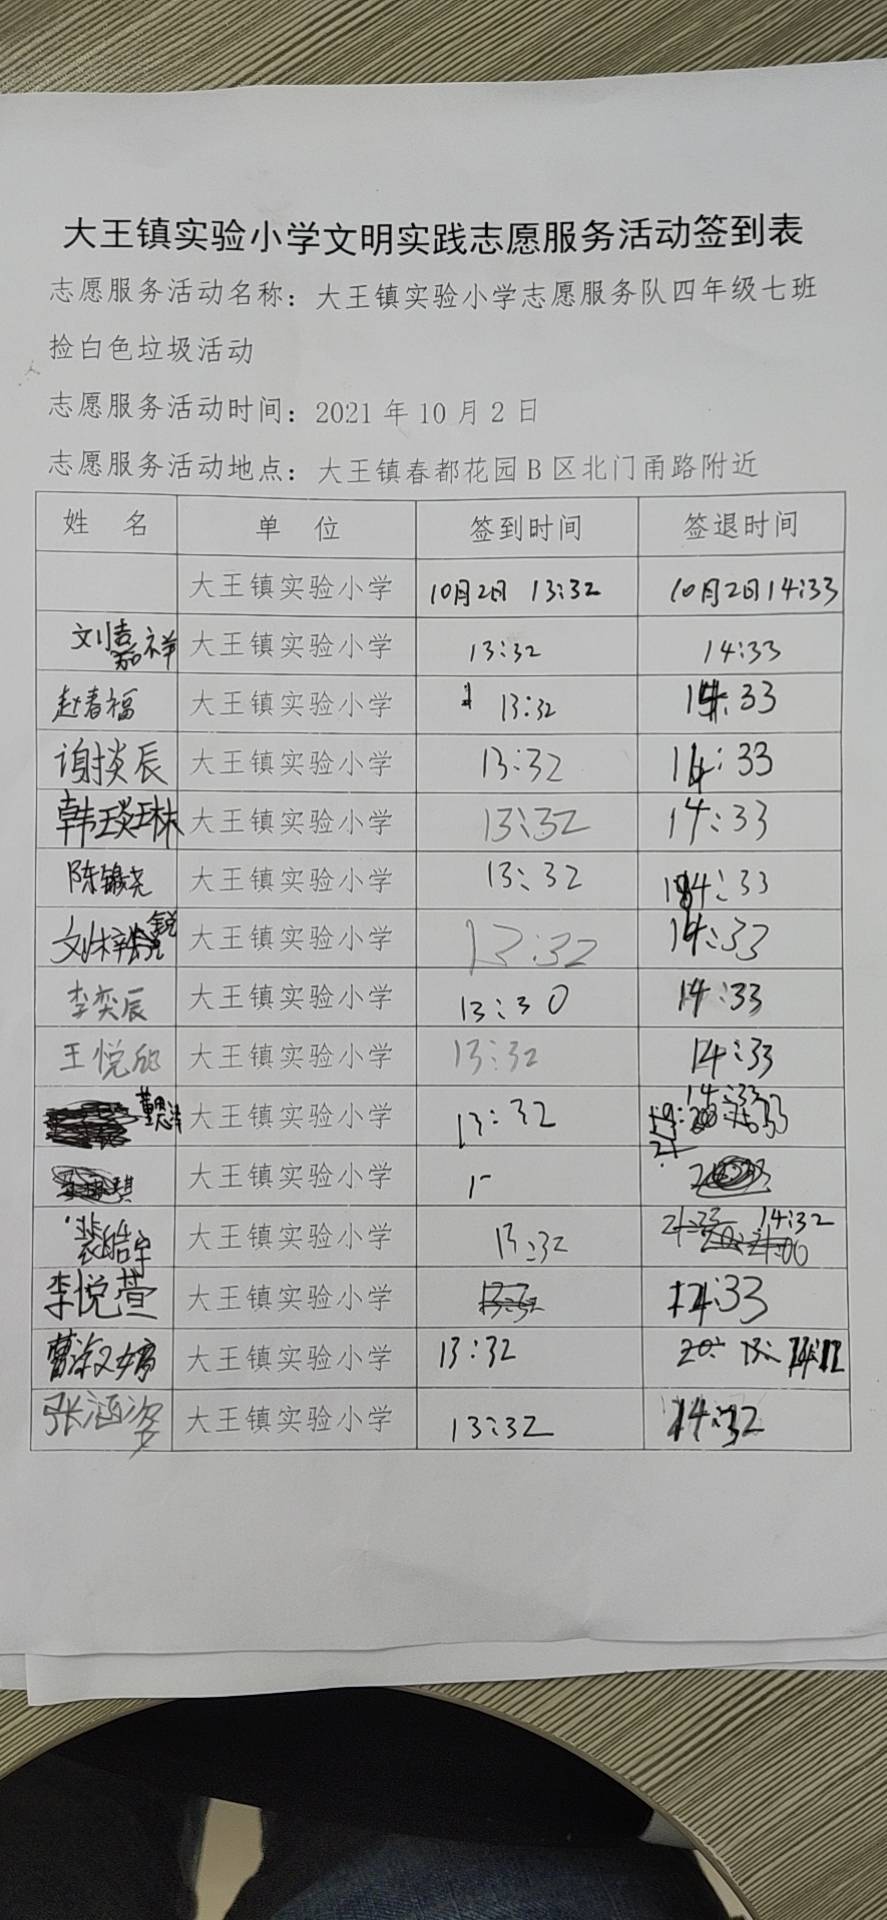 大王镇实验小学文明实践志愿服务活动签到表
志愿服务活动名称：大王镇实验小学志愿服务队四年级七班
捡白色垃圾活动
志愿服务活动时间：2021 年 10 月 2 日
志愿服务活动地点：大王镇春都花园 B 区北门甬路附近
姓 名 单 位 签到时间 签退时间
大王镇实验小学 10月2日 13:32 10月2日14:33
刘嘉祥 大王镇实验小学 13:32 14:33
赵春福 大王镇实验小学 13:32 14:33
谢掞辰 大王镇实验小学 13:32 14:33
韩琰琳 大王镇实验小学 13:32 14:33
陈锦尧 大王镇实验小学 13:32 14:33
刘梓锐 大王镇实验小学 13:32 14:33
李奕辰 大王镇实验小学 13:30 14:33
王悦欣 大王镇实验小学 13:32 14:33
董 大王镇实验小学 13:32 14:33
大王镇实验小学
裴皓宇 大王镇实验小学 13:32 14:32
李悦萱 大王镇实验小学 13:32 14:33
大王镇实验小学 13:32
张涵 大王镇实验小学 13:32 14:32